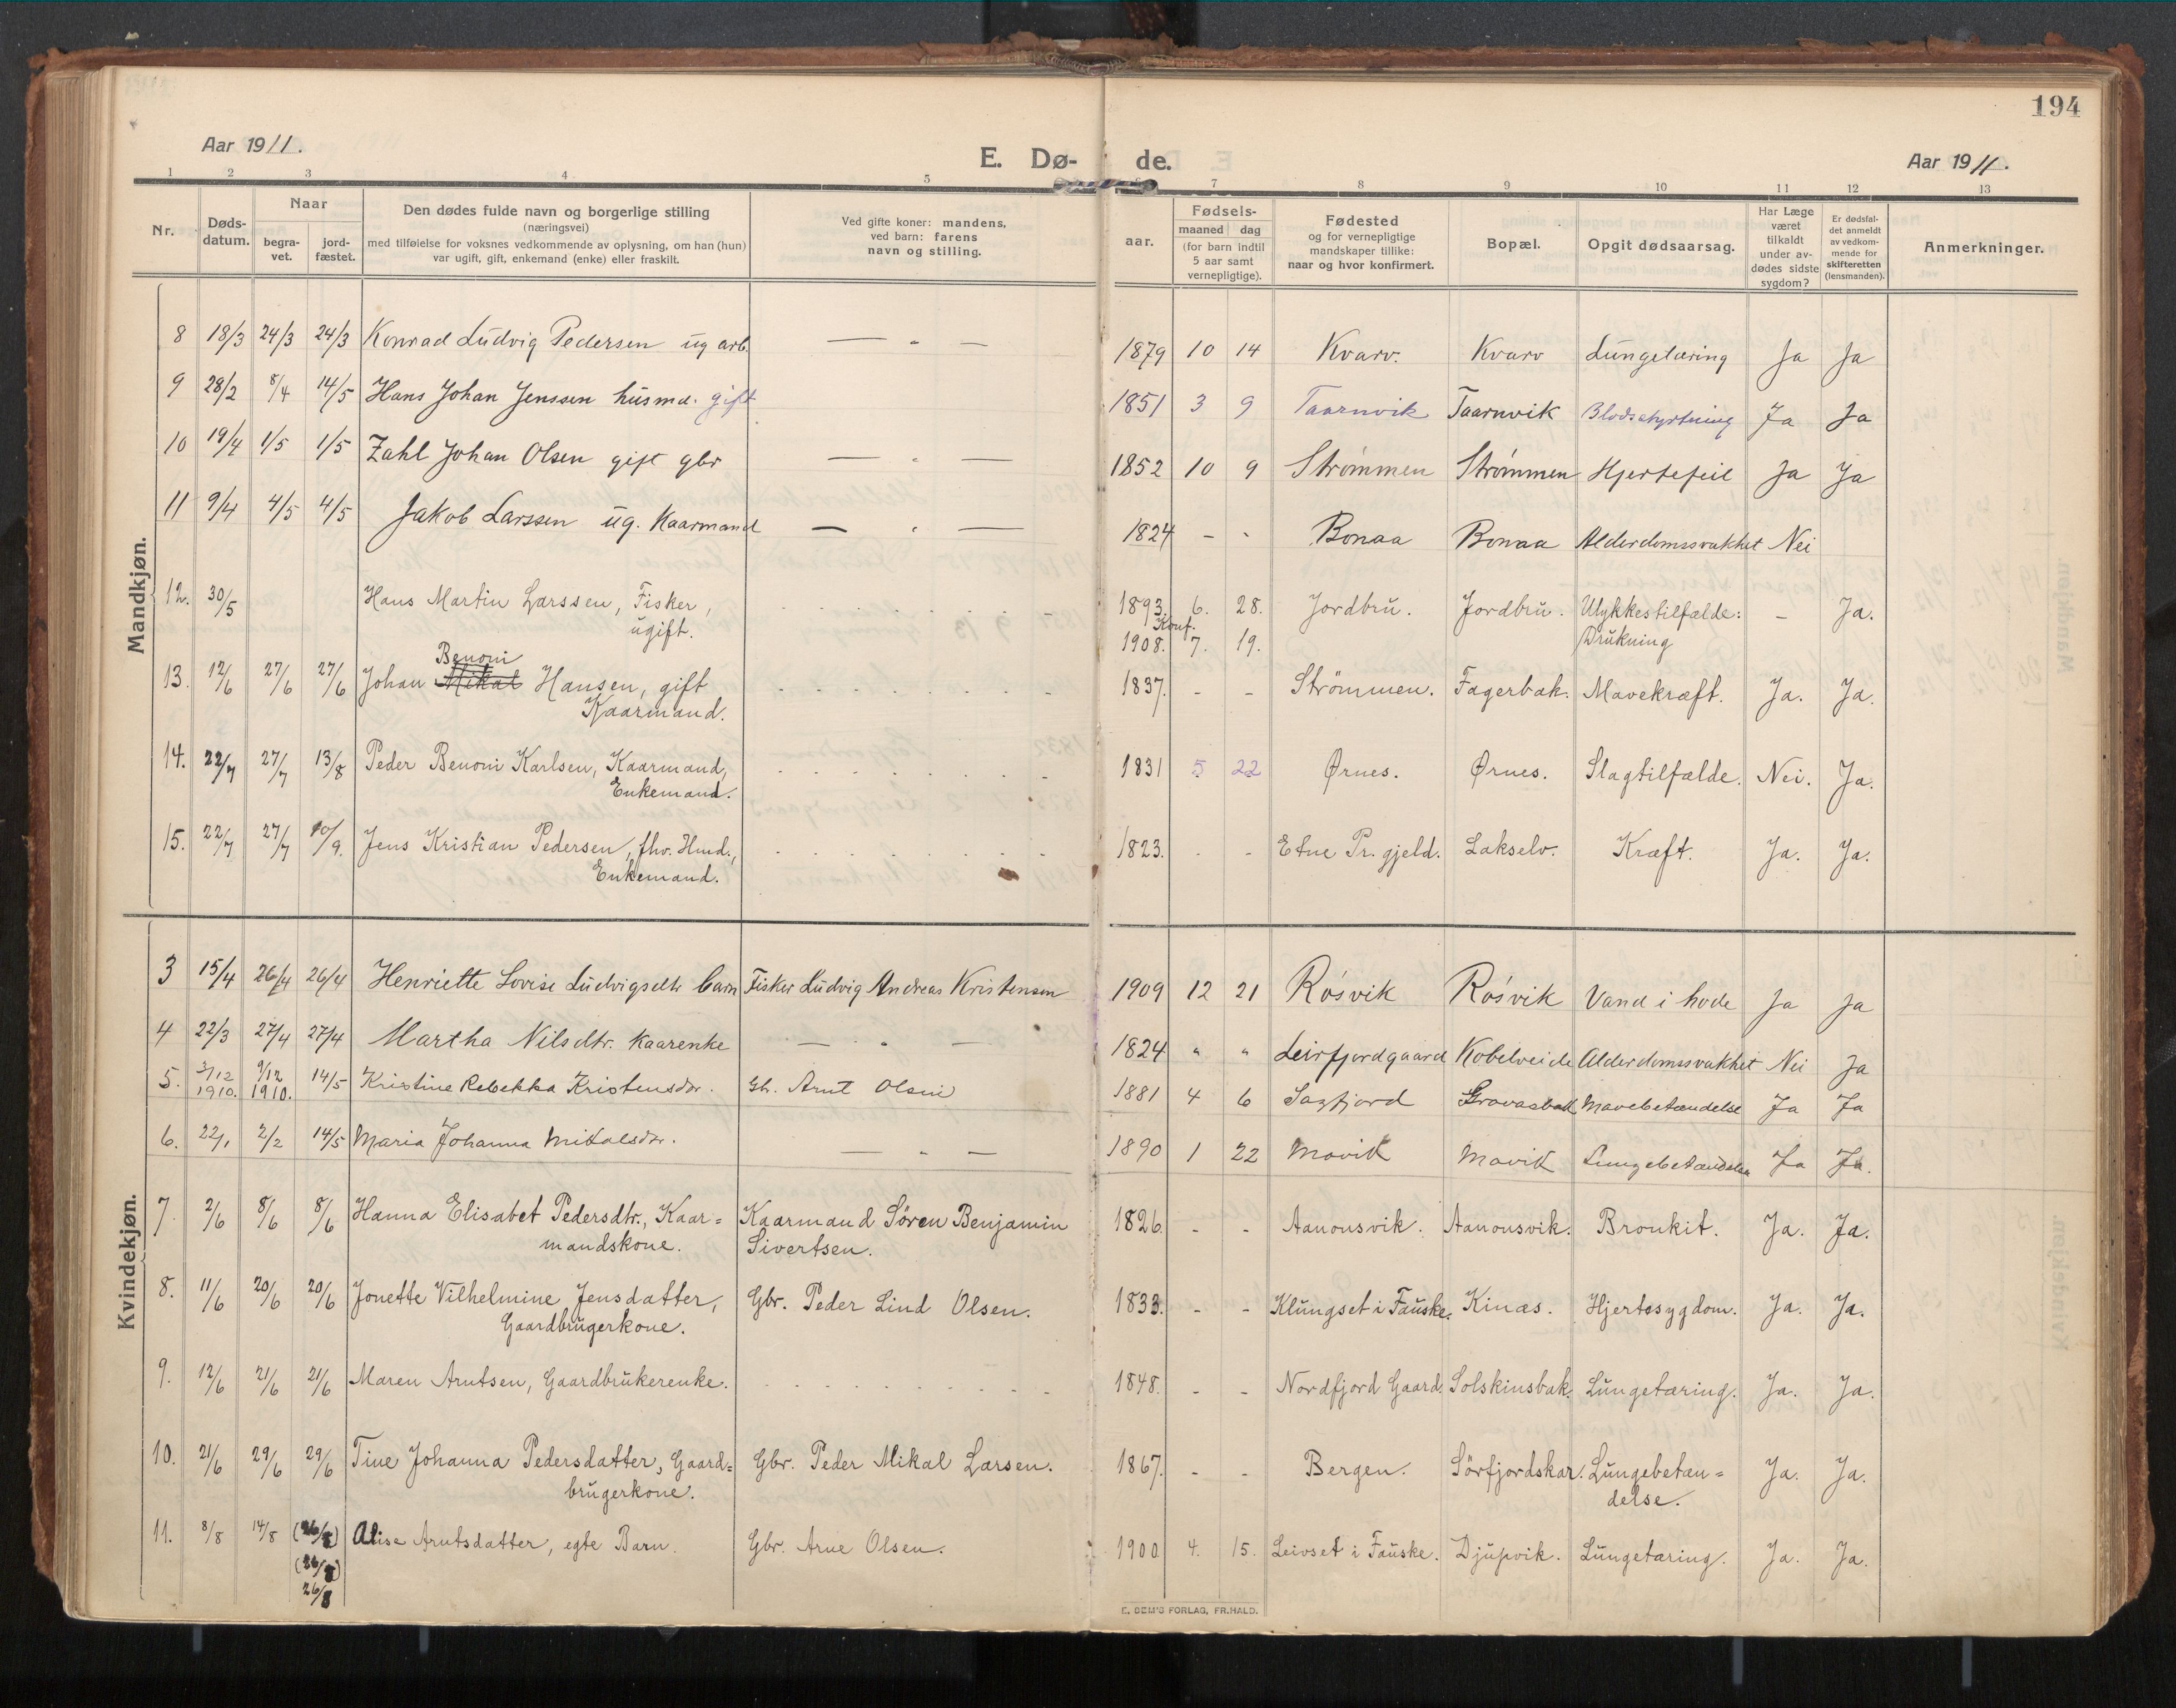 194
Aar 1911.
E. Dø- de.
Aar 1911.
1 2 3 4 5 7 8 9 10 11 12 13
Nr. Døds-datum. Naar begra-vet. jord-fæstet. Den dødes fulde navn og borgerlige stilling (næringsvei) med tilføielse for voksnes vedkommende av oplysning, om han (hun) var ugift, gift, enkemand (enke) eller fraskilt. Ved gifte koner: mandens, ved barn: farens navn og stilling. aar. Fødsels- maaned dag (for barn indtil 5 aar samt vernepligtige). Fødested og for vernepligtige mandskaper tillike: naar og hvor konfirmert. Bopæl. Opgit dødsaarsag. Har Læge været tilkaldt under av-dødes sidste sygdom? Er dødsfal-det anmeldt av vedkom-mende for skifteretten (lensmanden). Anmerkninger.
Mandkjøn.
8 18/3 24/3 24/3 Konrad Ludvig Pedersen ug arb. — " — 1879 10 14 Kvarv. Kvarv Lungetæring Ja Ja
9 28/2 8/4 14/5 Hans Johan Jenssen husmd. gift 1851 3 9 Taarnvik Taarnvik Blodstyrtning Ja Ja
10 19/4 1/5 1/5 Zahl Johan Olsen gift gbr — " — 1852 10 9 Strømmen Strømmen Hjertefeil Ja Ja
11 9/4 4/5 4/5 Jakob Larssen ug. Kaarmand — " — 1824 - - Bonaa Bonaa Alderdomssvakhet Nei
12. 30/5 Hans Martin Larssen, Fisker, 1893. 6. 28. Jordbru. Jordbru. Ulykkestilfælde: - Ja.
ugift. Konf. 1908. 7. 19. Drukning
13. 12/6 27/6 27/6 Johan Mikal Benoni Hansen, gift 1837. - - Strömmen. Fagerbak. Mavekræft. Ja. Ja.
Kaarmand.
14. 22/7 27/7 13/8 Peder Benoni Karlsen, Kaarmand, 1831 5 22 Ørnes. Ørnes. Slagtilfælde. Nei. Ja.
Enkemand.
15. 22/7 27/7 10/9. Jens Kristian Pedersen, fhv. Hmd., 1823. - - Etne Pr. gjeld. Lakselv. Kræft. Ja. Ja.
Enkemand.
Kvindekjøn.
3 15/4 26/4 26/4 Henriette Lovise Ludvigsdtr barn Fisker Ludvig Andreas Kristensen 1909 12 21 Røsvik Røsvik Vand i hode Ja Ja
4 22/3 27/4 27/4 Martha Nilsdtr. Kaarenke — " — 1824 " " Leirfjordgaard Kobelveide Alderdomssvakhet Nei Ja
5. 3/12 1910. 9/12 1910. 14/5 Kristine Rebekka Kristensdtr. Gb. Arnt Olsen 1881 4 6 Sagfjord Gravasbak Mavebetændelse Ja Ja
6. 22/1 2/2 14/5 Maria Johanna Mikalsdtr. — " — 1890 1 22 Movik Movik Lungebetændelse Ja Ja.
7. 2/6 8/6 8/6 Hanna Elisabet Pedersdtr., Kaar= Kaarmand Søren Benjamin 1826. - - Aanonsvik. Aanonsvik. Bronkit. Ja. Ja.
mandskone. Sivertsen.
8. 11/6 20/6 20/6 Jonette Vilhelmine Jensdatter, Gbr. Peder Lind Olsen. 1833. - - Klungset i Fauske. Kinæs. Hjertesygdom. Ja. Ja.
Gaardbrugerkone.
9. 12/6 21/6 21/6 Maren Arntsen, Gaardbrukerenke. 1848. - - Nordfjord Gaard. Solskinsbak. Lungetæring. Ja. Ja.
10. 21/6 29/6 29/6 Tine Johanna Pedersdatter, Gaard= Gbr. Peder Mikal Larsen. 1867. - - Bergen. Sörfjordskar. Lungebetæn=
brugerkone. delse. Ja. Ja.
11. 8/8 14/8 (26/8) Alise Arntsdatter, egte Barn. Gbr. Arne Olsen. 1900 4. 15. Leivset i Fauske. Djupvik. Lungetæring. Ja. Ja.
(26/8)
26/8
E. SEM'S FORLAG, FR.HALD.